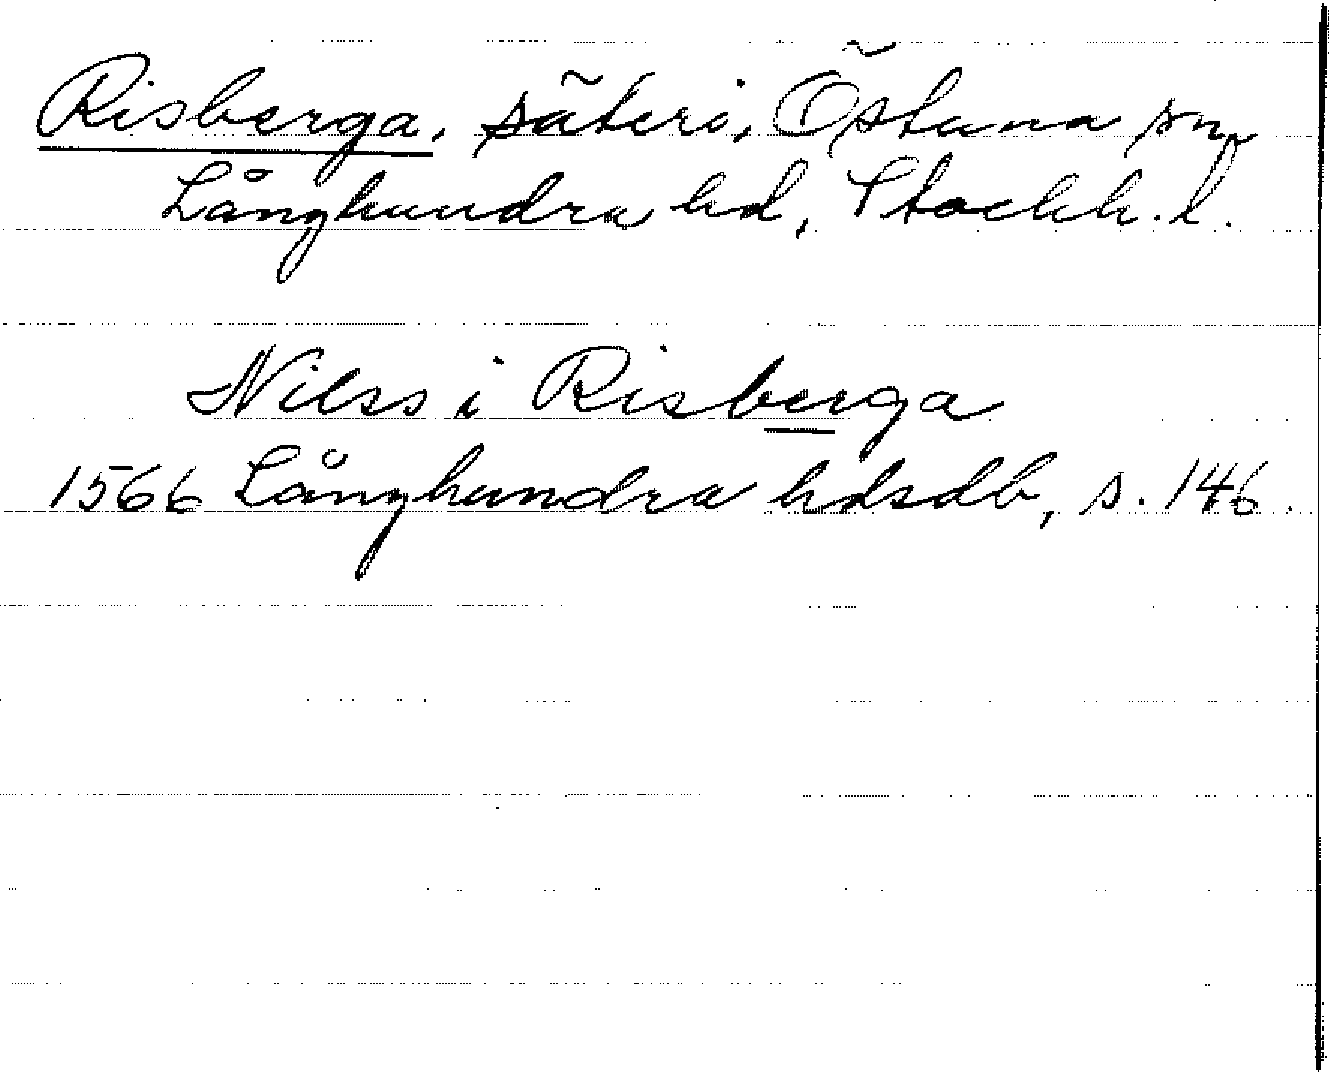 Risberga, säteri, Östuna sn,
Långhundra hd, Stockh. l.
Nilss i Risberga
1566 Långhundra hdsdb, s. 146.